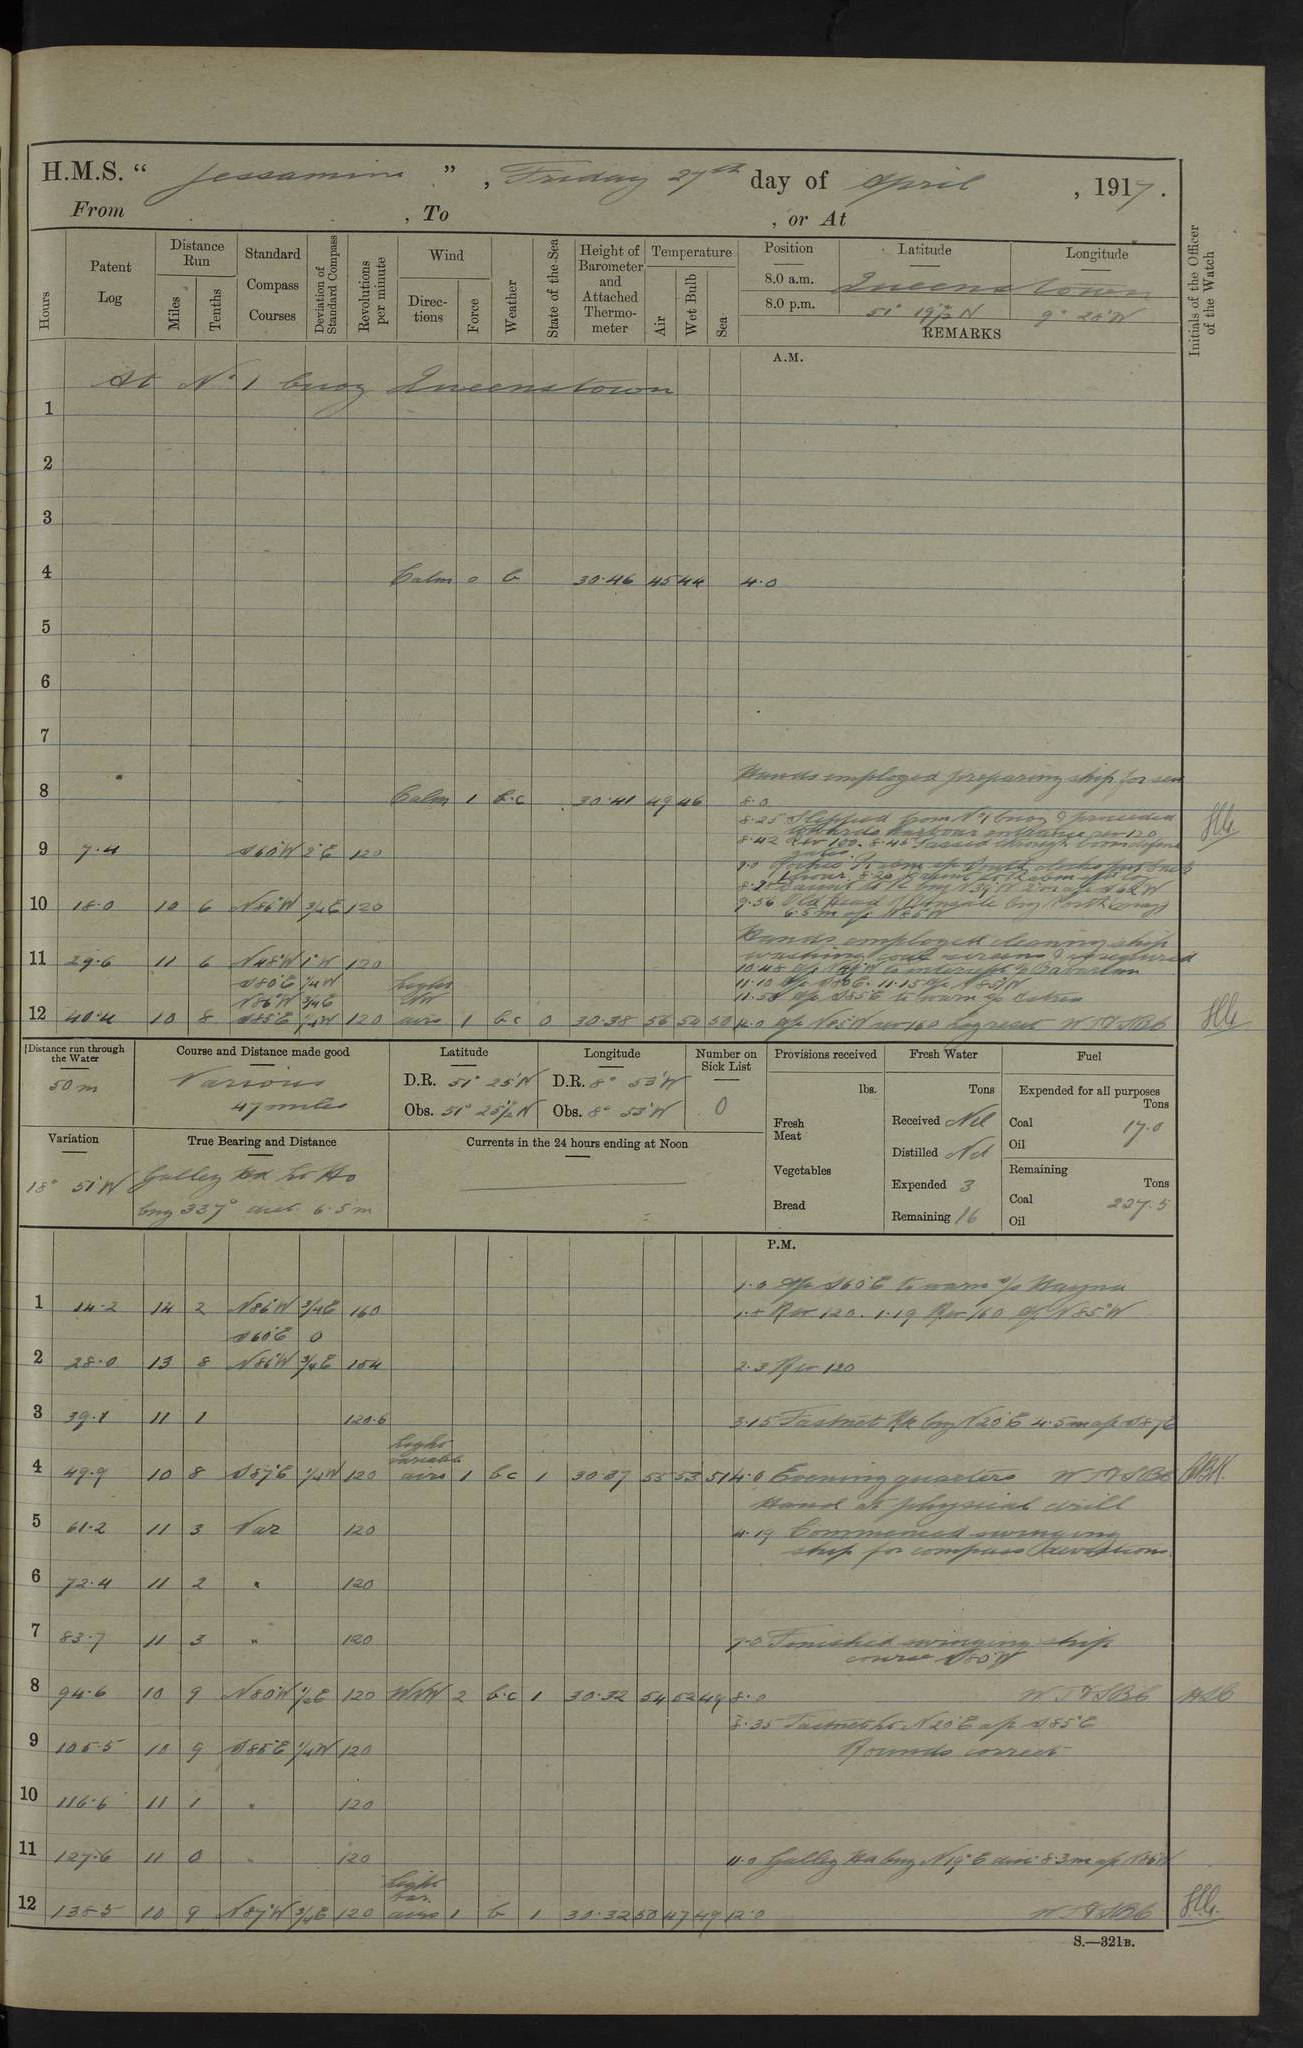 H.M.S. “ Jessamine ” , Friday 27th day of April , 1917.
From , To , or At
Hours
Patent Log
Distance Run
Miles
Tenths
Standard Compass Courses
Deviation of Standard Compass
Revolutions per minute
Wind
Directions
Force
Weather
State of the Sea
Height of Barometer and Attached Thermometer
Temperature
Air
Wet Bulb
Sea
Position Latitude Longitude
8.0 a.m. Queenstown
8.0 p.m. 51° 19½'N 9° 28'W
REMARKS
Initials of the Officer of the Watch
A.M.
At No 1 buoy Queenstown
1
2
3
4 Calm 0 b 30.46 45 44 4.0
5
6
7
Hands employed preparing ship for sea
8 Calm 1 b.c 30.41 49 46 8.0
8.25 Slipped from No 1 buoy & proceeded
towards harbour entrance rev 120
8.42 Rev 100. 8.45 Passed through boom defence
9 7.4 S60°W 2°E 120
10 18.0 10 6 N86°W 3/4E 120
9.56 Old Head of Kinsale brg North
6.5m a/c N85W
Hands employed cleaning ship
11 29.6 11 6 N48W 1°W 120
S80E 1/4W
N86W 3/4E
light
airs
11.10 a/c S80E. 11.15 a/c S85W
11.50 a/c S85E to warn
12 40.4 10 8 S85E 1/4W 120 1 b.c 0 30.38 56 54 50 12.0 a/c N85W rev 160 Log reset W T & SBC
Distance run through the Water
50m
Course and Distance made good
Various
47 miles
Latitude
D.R. 51° 25'N
Obs. 51° 25½'N
Longitude
D.R. 8° 53'W
Obs. 8° 53'W
Number on Sick List
0
Provisions received
lbs.
Fresh Meat
Vegetables
Bread
Fresh Water
Tons
Received Nil
Distilled Nil
Expended 3
Remaining 16
Fuel
Expended for all purposes
Tons
Coal 17.0
Oil
Remaining
Tons
Coal 227.5
Oil
Variation
18° 51'W
True Bearing and Distance
Galley Hd Lt Ho
brg 337° dist 6.5m
Currents in the 24 hours ending at Noon
P.M.
1.0 a/c S60°E to warn
1 14.2 14 2 N86W 3/4E 160 1.8 Rev 120. 1.19 Rev 160 a/c N85°W
S60E 0
2 28.0 13 8 N86W 3/4E 154 2.3 Rev 120
3 39.1 11 1 120.6 3.15 Fastnet Rk brg N20°E 4.5m a/c S87E
light
variable
4 49.9 10 8 S87E 1/4W 120 airs 1 b.c 1 30.37 55 53 51 4.0 Evening quarters W T & SBC
Hands at physical drill
5 61.2 11 3 Var 120 4.19 Commenced swinging
ship for compass deviations
6 72.4 11 2 " 120
7 83.7 11 3 " 120 7.0 Finished swinging ship
course N80W
8 94.6 10 9 N80W 1/2E 120 WNW 2 b.c 1 30.32 54 52 49 8.0 W T & SBC
8.35 Fastnet Lt N20°E a/c S85°E
9 105.5 10 9 S85E 1/4W 120 Rounds correct
10 116.6 11 1 " 120
11 127.6 11 0 " 120 11.0 Galley Hd brg N19°E dist 8.3m a/c N86W
light
var.
12 138.5 10 9 N87W 3/4E 120 airs 1 b 1 30.32 50 47 49 12.0 W T & SBC
S.—321B.